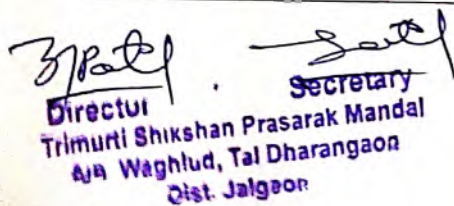 Director Secretary
Trimurti Shikshan Prasarak Mandal
Waghlud, Tal Dharangaon
Dist. Jalgaon